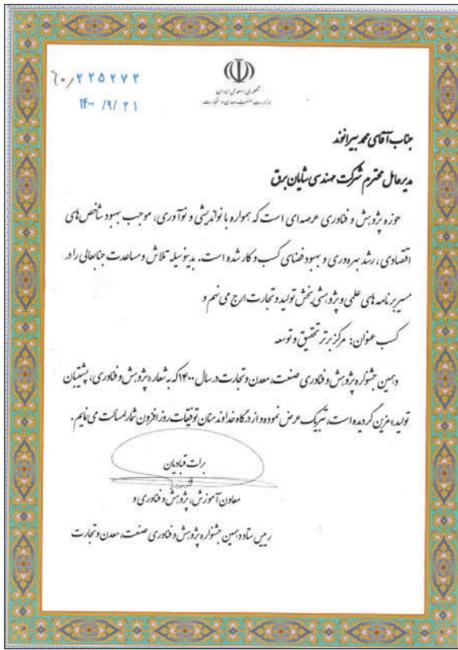 ۶۰/۲۲۵۲۷۲
۱۴۰۰/۹/۲۱
جمهوری اسلامی ایران
وزارت صنعت، معدن و تجارت
جناب آقای محمد بیرانوند
مدیرعامل محترم شرکت مهندسی شایان برق
حوزه پژوهش و فناوری عرصه‌ای است که همواره با نواندیشی و نوآوری، موجب بهبود شاخص‌های
اقتصادی، رشد بهره‌وری و بهبود فضای کسب و کار شده است. بدینوسیله تلاش و مساعدت جنابعالی را در
مسیر برنامه‌های علمی و پژوهشی بخش تولید و تجارت ارج می‌نهم و
کسب عنوان: مرکز برتر تحقیق و توسعه
دهمین جشنواره پژوهش و فناوری صنعت، معدن و تجارت در سال ۱۴۰۰ که به شعار «پژوهش و فناوری، پشتیبان
تولید» مزین گردیده است، تبریک عرض نموده و از درگاه خداوند منان توفیقات روز افزون شما را مسالت می‌نمایم.
برات قبادیان
معاون آموزش، پژوهش و فناوری و
رییس ستاد دهمین جشنواره پژوهش و فناوری صنعت، معدن و تجارت